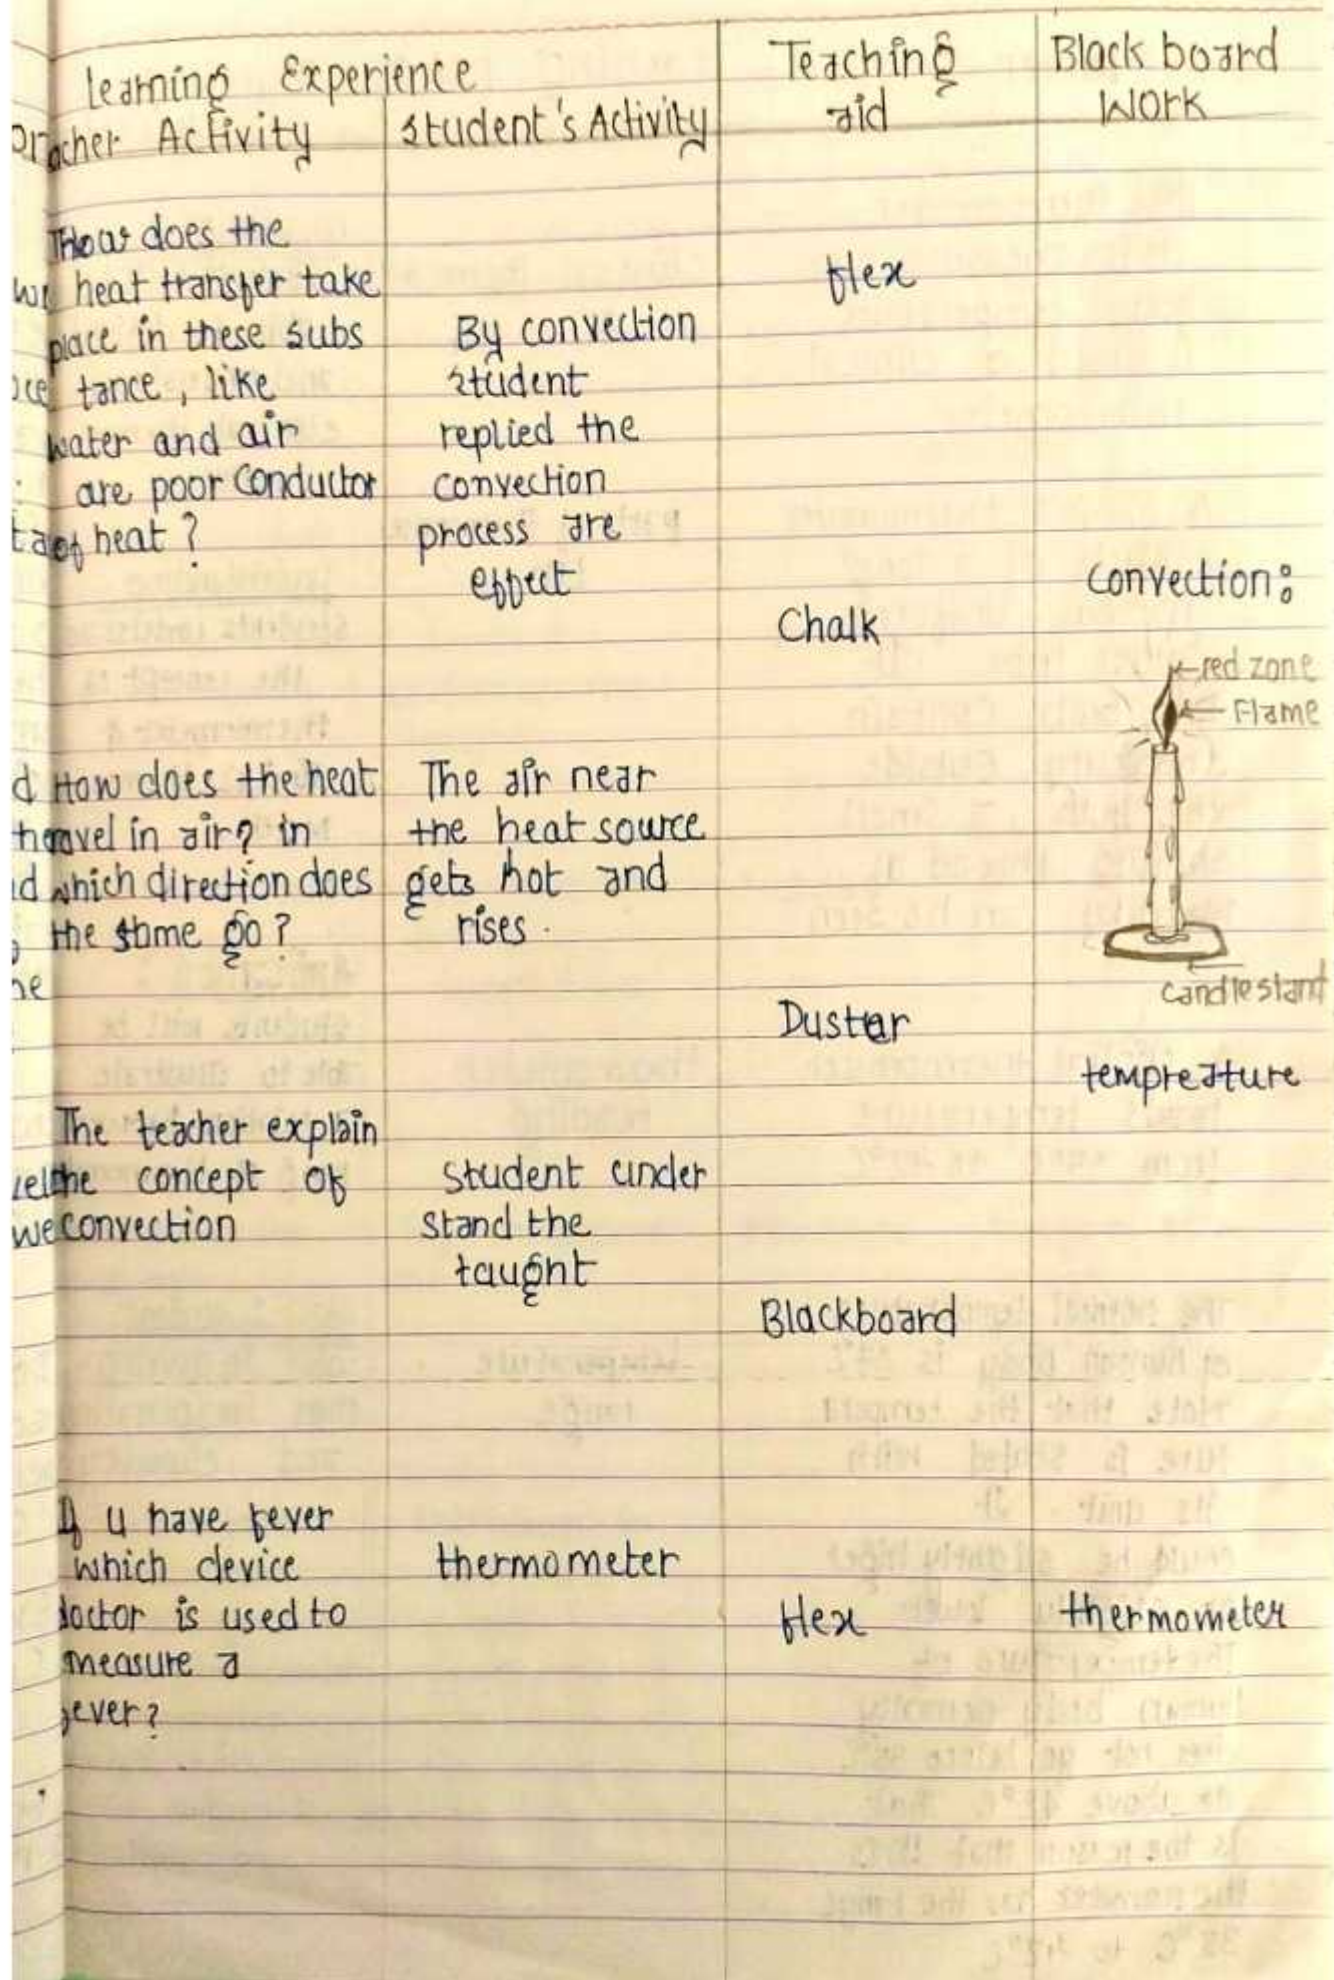 Learning Experience
Teaching aid
Black board Work
Teacher Activity
Student's Activity
How does the
heat transfer take
place in these subs
tance, like
water and air
are poor conductor
of heat?
By convection
student
replied the
convection
process are
effect
flex
Chalk
convection:
red zone
Flame
candle stand
How does the heat
travel in air? in
which direction does
the same go?
The air near
the heat source
gets hot and
rises.
Duster
tempreature
The teacher explain
the concept of
convection
Student under
stand the
taught
Blackboard
If u have fever
which device
doctor is used to
measure a
fever?
thermometer
flex
thermometer